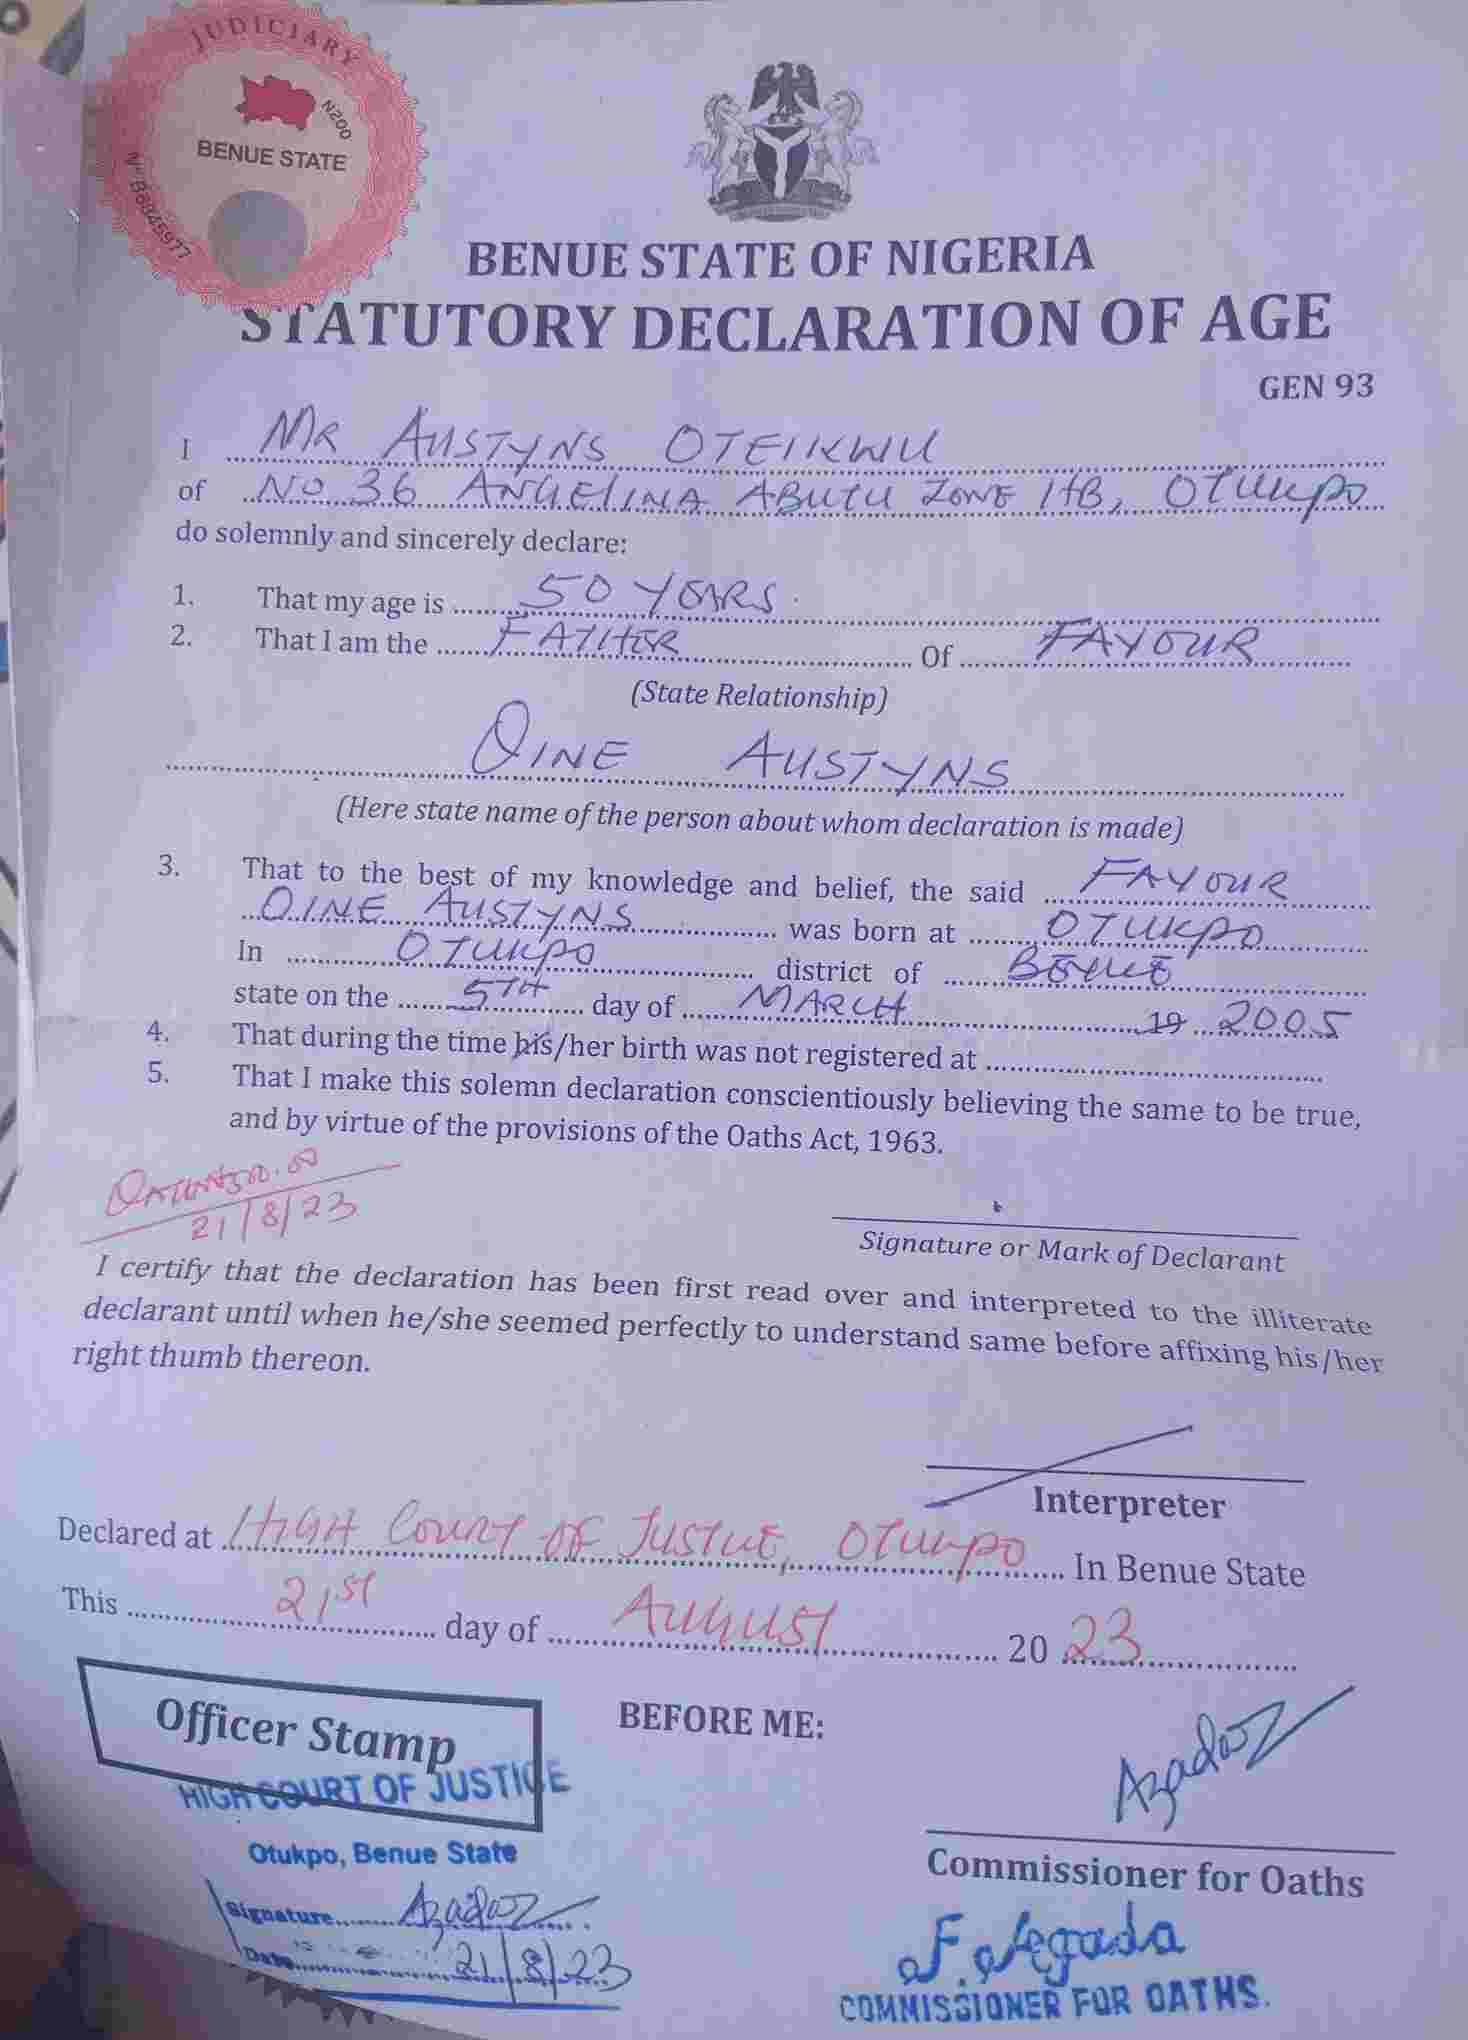 JUDICIARY
N200
BENUE STATE
Nº B6945977
BENUE STATE OF NIGERIA
STATUTORY DECLARATION OF AGE
GEN 93
I MR AUSTYNS OTEIKWU
of NO 36 ANGELINA ABUTU ZONE HB, OTUKPO
do solemnly and sincerely declare:
1. That my age is 50 YEARS.
2. That I am the FATHER Of FAVOUR
(State Relationship)
OINE AUSTYNS
(Here state name of the person about whom declaration is made)
3. That to the best of my knowledge and belief, the said FAVOUR
OINE AUSTYNS was born at OTUKPO
In OTUKPO district of BENUE
state on the 5TH day of MARCH 19 2005
4. That during the time his/her birth was not registered at
5. That I make this solemn declaration conscientiously believing the same to be true,
and by virtue of the provisions of the Oaths Act, 1963.
21/8/23
Signature or Mark of Declarant
I certify that the declaration has been first read over and interpreted to the illiterate
declarant until when he/she seemed perfectly to understand same before affixing his/her
right thumb thereon.
Interpreter
Declared at HIGH COURT OF JUSTICE, OTUKPO In Benue State
This 21st day of AUGUST 20 23
Officer Stamp
BEFORE ME:
HIGH COURT OF JUSTICE
Otukpo, Benue State
Commissioner for Oaths
Signature
Date 21/8/23
COMMISSIONER FOR OATHS.